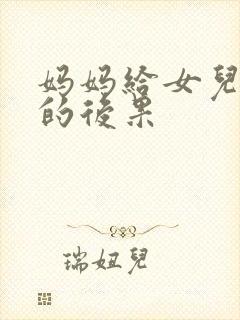 妈妈給女兒
的後果
瑞妞兒